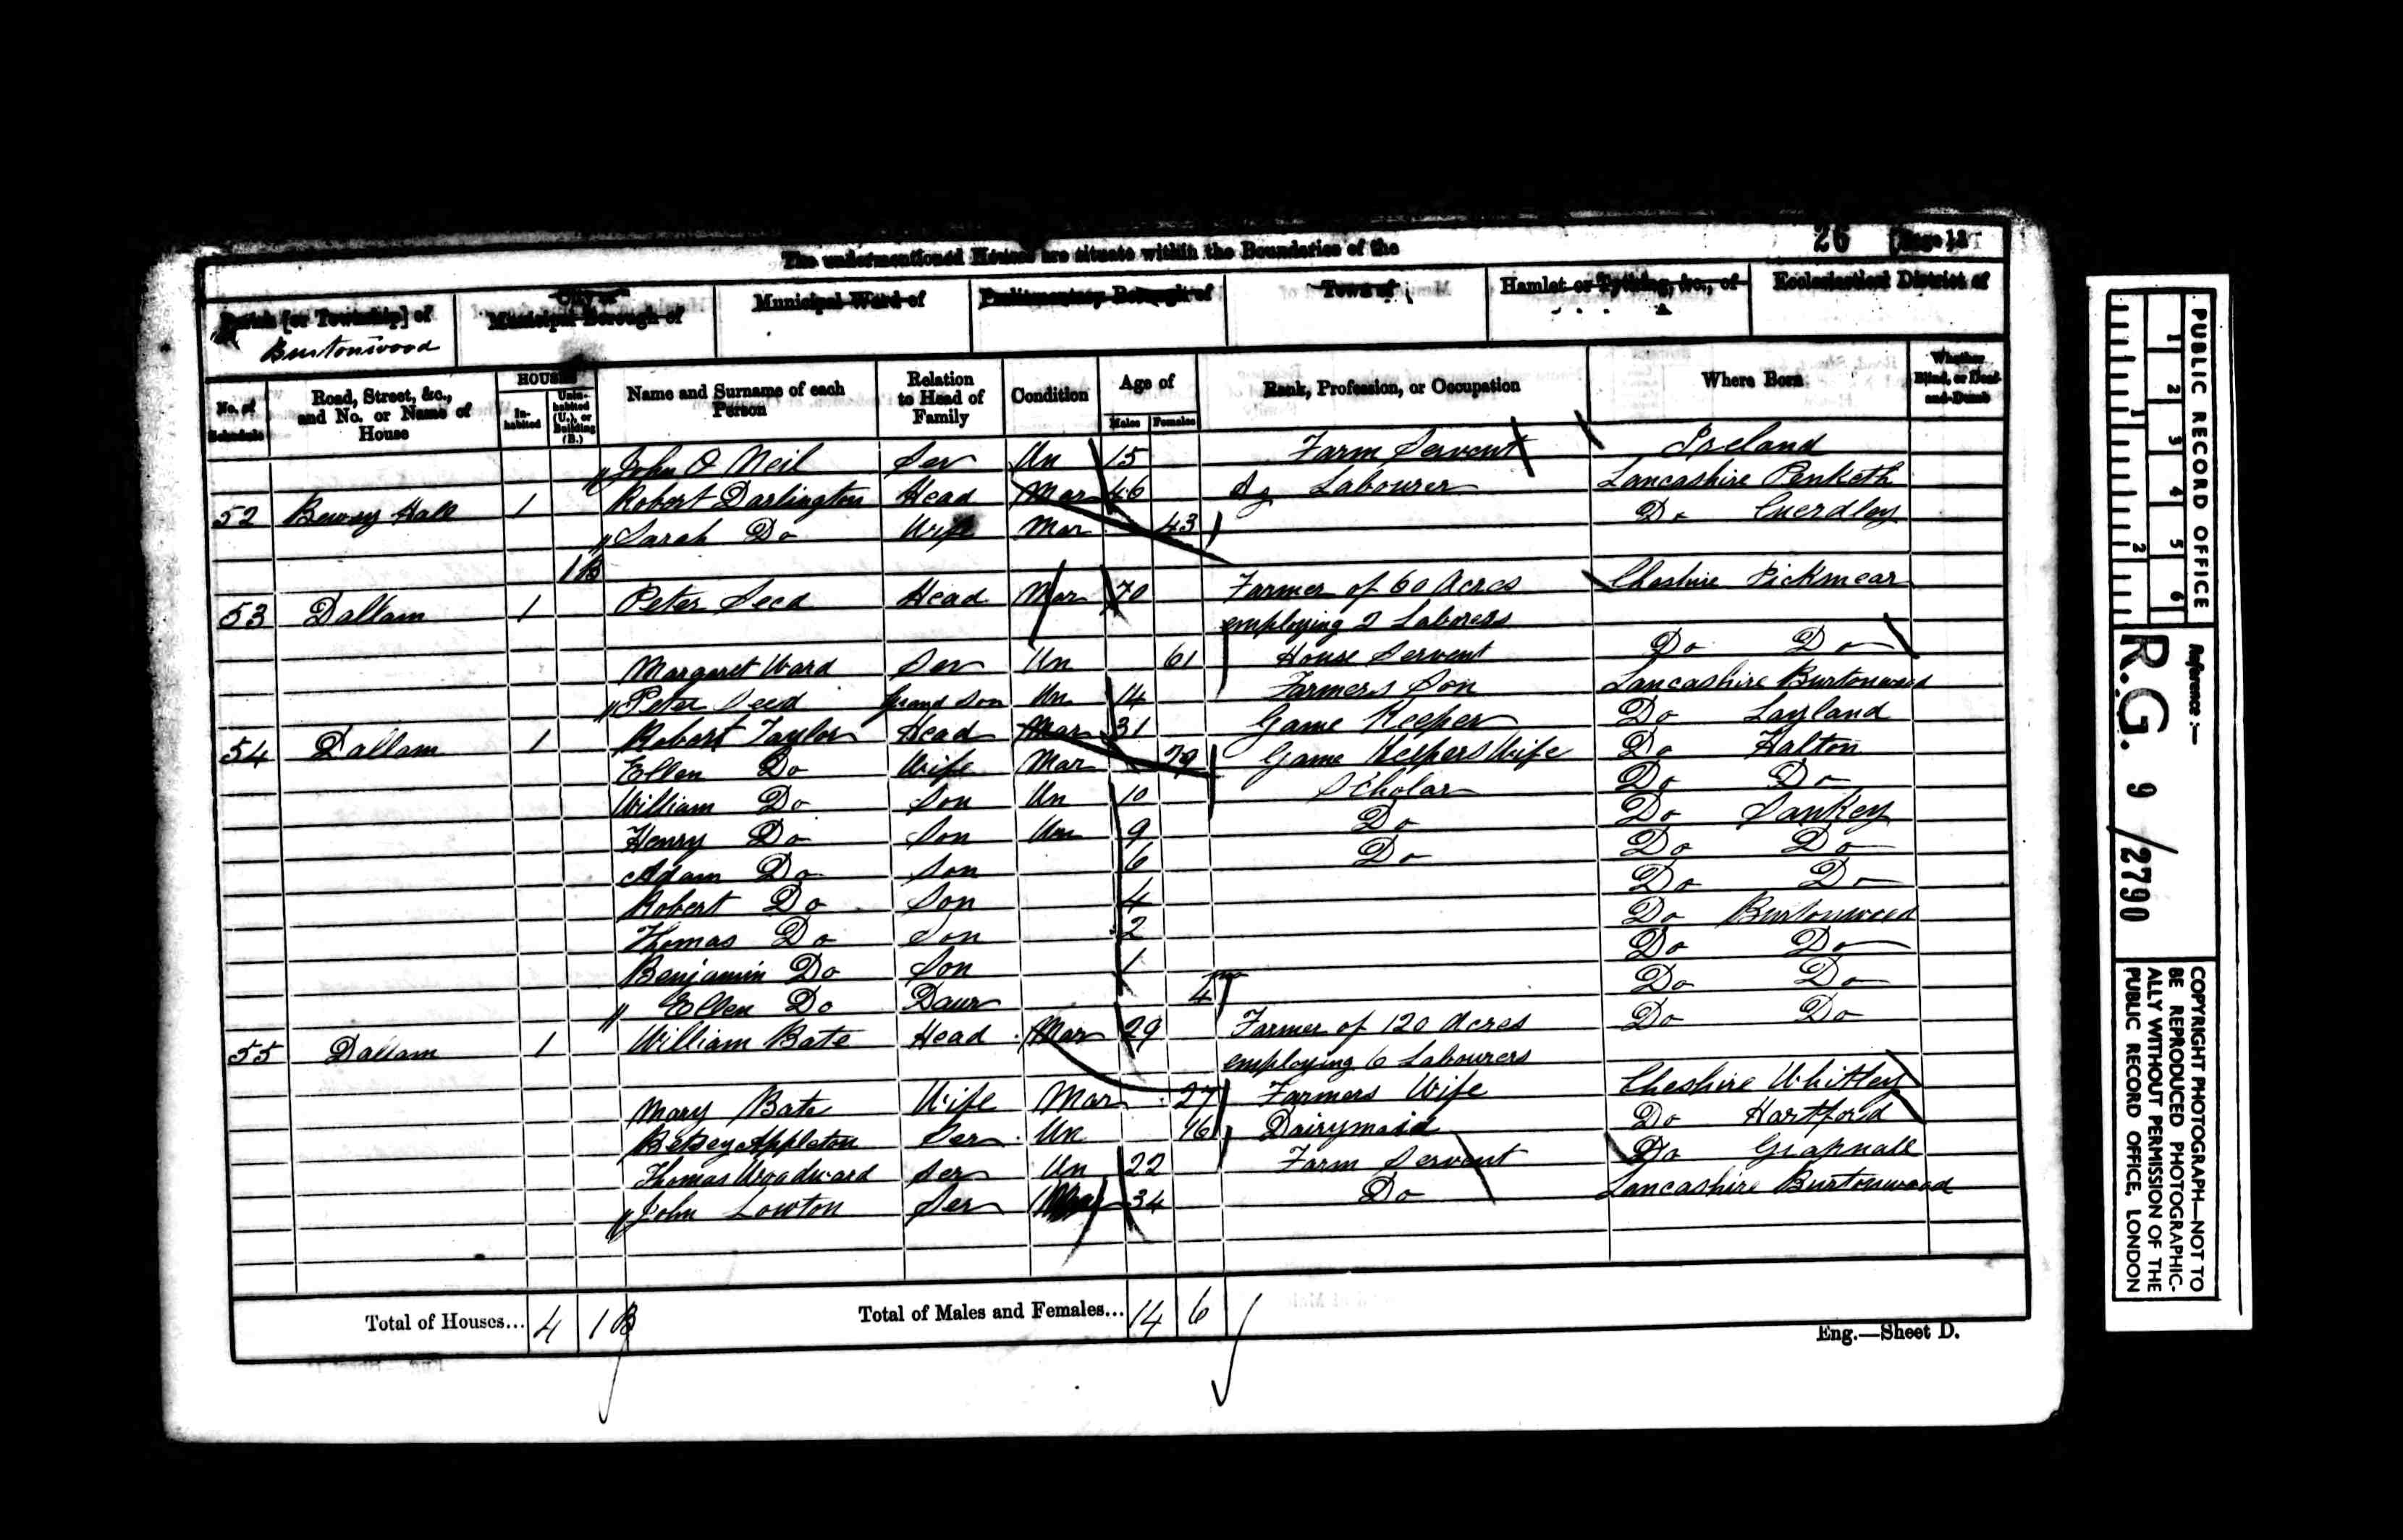 The undermentioned Houses are situate within the Boundaries of the
26 [Page 12
Parish [or Township] of
Burtonwood
City or Municipal Borough of
Municipal Ward of
Parliamentary Borough of
Town of
Hamlet or Tything, &c., of
Ecclesiastical District of
No. of Schedule
Road, Street, &c., and No. or Name of House
HOUSES
In-habited
Unin-habited (U.), or Building (B.)
Name and Surname of each Person
Relation to Head of Family
Condition
Age of
Males Females
Rank, Profession, or Occupation
Where Born
Whether Blind, or Deaf-and-Dumb
" John O Neil Ser Un 15 Farm Servent Ireland
52 Bewsy Hall 1 Robert Darlington Head Mar 46 Ag Labourer Lancashire Penketh
" Sarah Do Wife Mar 43 Do Cuerdley
1 B
53 Dallam 1 Peter Seed Head Mar 70 Farmer of 60 Acres Cheshire Pickmear
employing 2 Laborers
Margaret Ward Ser Un 61 House Servent Do Do
" Peter Seed Grand Son Un 14 Farmers Son Lancashire Burtonwood
54 Dallam 1 Robert Taylor Head Mar 31 Game Keeper Do Layland
Ellen Do Wife Mar 29 Game Keepers Wife Do Halton
William Do Son Un 10 Scholar Do Do
Henry Do Son Un 9 Do Do Sankey
Adam Do Son 6 Do Do Do
Robert Do Son 4 Do Do
Thomas Do Son 2 Do Burtonwood
Benjamin Do Son 1 Do Do
" Ellen Do Daur 4 mo Do Do
55 Dallam 1 William Bate Head Mar 29 Farmer of 120 Acres Do Do
employing 6 Labourers
Mary Bate Wife Mar 27 Farmers Wife Cheshire Whitley
Betsey Appleton Ser Un 16 Dairymaid Do Hartford
Thomas Woodward Ser Un 22 Farm Servent Do Grapnall
" John Lowton Ser 34 Do Lancashire Burtonwood
Total of Houses... 4 1 B
Total of Males and Females... 14 6
Eng.—Sheet D.
PUBLIC RECORD OFFICE
1 2 3 4 5 6
1 2
Reference :—
R.G. 9 / 2790
COPYRIGHT PHOTOGRAPH—NOT TO
BE REPRODUCED PHOTOGRAPHIC-
ALLY WITHOUT PERMISSION OF THE
PUBLIC RECORD OFFICE, LONDON